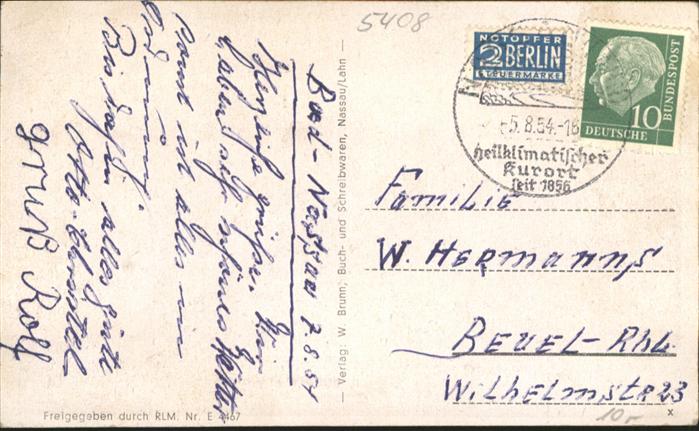 5408
NOTOPFER
2 BERLIN
STEUERMARKE
10
DEUTSCHE
BUNDESPOST
-5.8.54.-18
heilklimatischer
Kurort
seit 1856
Bad-Nassau 7.8.54
Herzliche grüße. Wir
haben auf
sonst ist alles in
Bis dahin alles Gute
Otto
Gruß Rolf
Verlag: W. Brunn; Buch- und Schreibwaren, Nassau/Lahn
Familie
W. Hermanns
BEUEL-Rh.
Wilhelmstr 23
10,-
Freigegeben durch RLM. Nr. E 4467
x